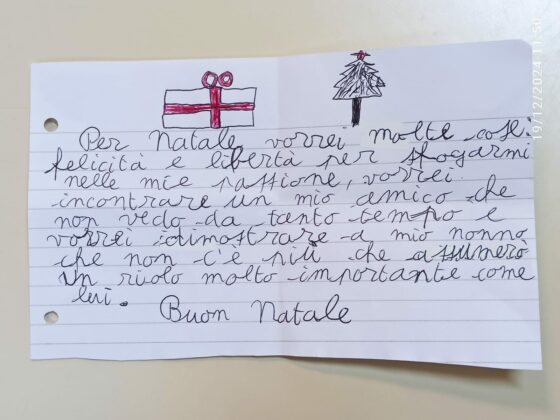 Per Natale vorrei molte cose:
felicità e libertà per sfogarmi
nelle mie passione, vorrei
incontrare un mio amico che
non vedo da tanto tempo e
vorrei dimostrare a mio nonno
che non c'è più che assumerò
un ruolo molto importante come
lui.
Buon Natale
19/12/2024 11:50